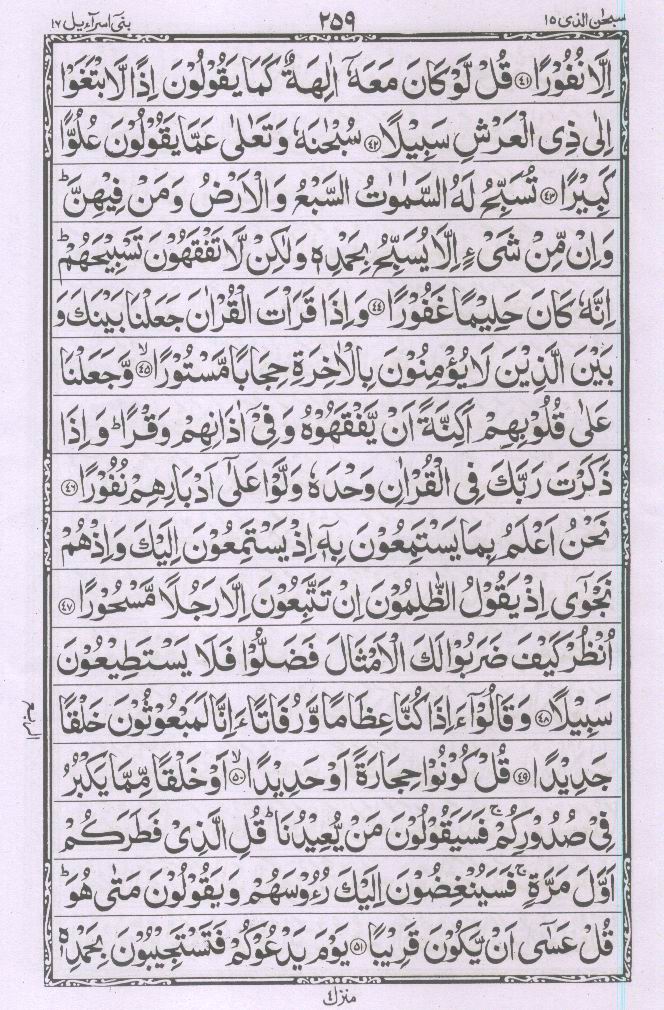 سبحٰن الذی ١٥
٢٥٩
بنی اسرآءیل ١٧
اِلَّا نُفُوْرًا ﴿٤١﴾ قُلْ لَّوْ كَانَ مَعَهٗۤ اٰلِهَةٌ كَمَا یَقُوْلُوْنَ اِذًا لَّابْتَغَوْا
اِلٰى ذِی الْعَرْشِ سَبِیْلًا ﴿٤٢﴾ سُبْحٰنَهٗ وَ تَعٰلٰى عَمَّا یَقُوْلُوْنَ عُلُوًّا
كَبِیْرًا ﴿٤٣﴾ تُسَبِّحُ لَهُ السَّمٰوٰتُ السَّبْعُ وَ الْاَرْضُ وَ مَنْ فِیْهِنَّ ؕ
وَ اِنْ مِّنْ شَیْءٍ اِلَّا یُسَبِّحُ بِحَمْدِهٖ وَ لٰكِنْ لَّا تَفْقَهُوْنَ تَسْبِیْحَهُمْ ؕ
اِنَّهٗ كَانَ حَلِیْمًا غَفُوْرًا ﴿٤٤﴾ وَ اِذَا قَرَاْتَ الْقُرْاٰنَ جَعَلْنَا بَیْنَكَ وَ
بَیْنَ الَّذِیْنَ لَا یُؤْمِنُوْنَ بِالْاٰخِرَةِ حِجَابًا مَّسْتُوْرًا ﴿٤٥﴾ ۙ وَّ جَعَلْنَا
عَلٰى قُلُوْبِهِمْ اَكِنَّةً اَنْ یَّفْقَهُوْهُ وَ فِیْۤ اٰذَانِهِمْ وَقْرًا ؕ وَ اِذَا
ذَكَرْتَ رَبَّكَ فِی الْقُرْاٰنِ وَحْدَهٗ وَلَّوْا عَلٰۤى اَدْبَارِهِمْ نُفُوْرًا ﴿٤٦﴾
نَحْنُ اَعْلَمُ بِمَا یَسْتَمِعُوْنَ بِهٖۤ اِذْ یَسْتَمِعُوْنَ اِلَیْكَ وَ اِذْ هُمْ
نَجْوٰۤى اِذْ یَقُوْلُ الظّٰلِمُوْنَ اِنْ تَتَّبِعُوْنَ اِلَّا رَجُلًا مَّسْحُوْرًا ﴿٤٧﴾
اُنْظُرْ كَیْفَ ضَرَبُوْا لَكَ الْاَمْثَالَ فَضَلُّوْا فَلَا یَسْتَطِیْعُوْنَ
سَبِیْلًا ﴿٤٨﴾ وَ قَالُوْۤا ءَاِذَا كُنَّا عِظَامًا وَّ رُفَاتًا ءَاِنَّا لَمَبْعُوْثُوْنَ خَلْقًا
جَدِیْدًا ﴿٤٩﴾ قُلْ كُوْنُوْا حِجَارَةً اَوْ حَدِیْدًا ﴿٥٠﴾ ۙ اَوْ خَلْقًا مِّمَّا یَكْبُرُ
فِیْ صُدُوْرِكُمْ ۚ فَسَیَقُوْلُوْنَ مَنْ یُّعِیْدُنَا ؕ قُلِ الَّذِیْ فَطَرَكُمْ
اَوَّلَ مَرَّةٍ ۚ فَسَیُنْغِضُوْنَ اِلَیْكَ رُءُوْسَهُمْ وَ یَقُوْلُوْنَ مَتٰى هُوَ ؕ
قُلْ عَسٰۤى اَنْ یَّكُوْنَ قَرِیْبًا ﴿٥١﴾ یَوْمَ یَدْعُوْكُمْ فَتَسْتَجِیْبُوْنَ بِحَمْدِهٖ
الربع
منزل ٤